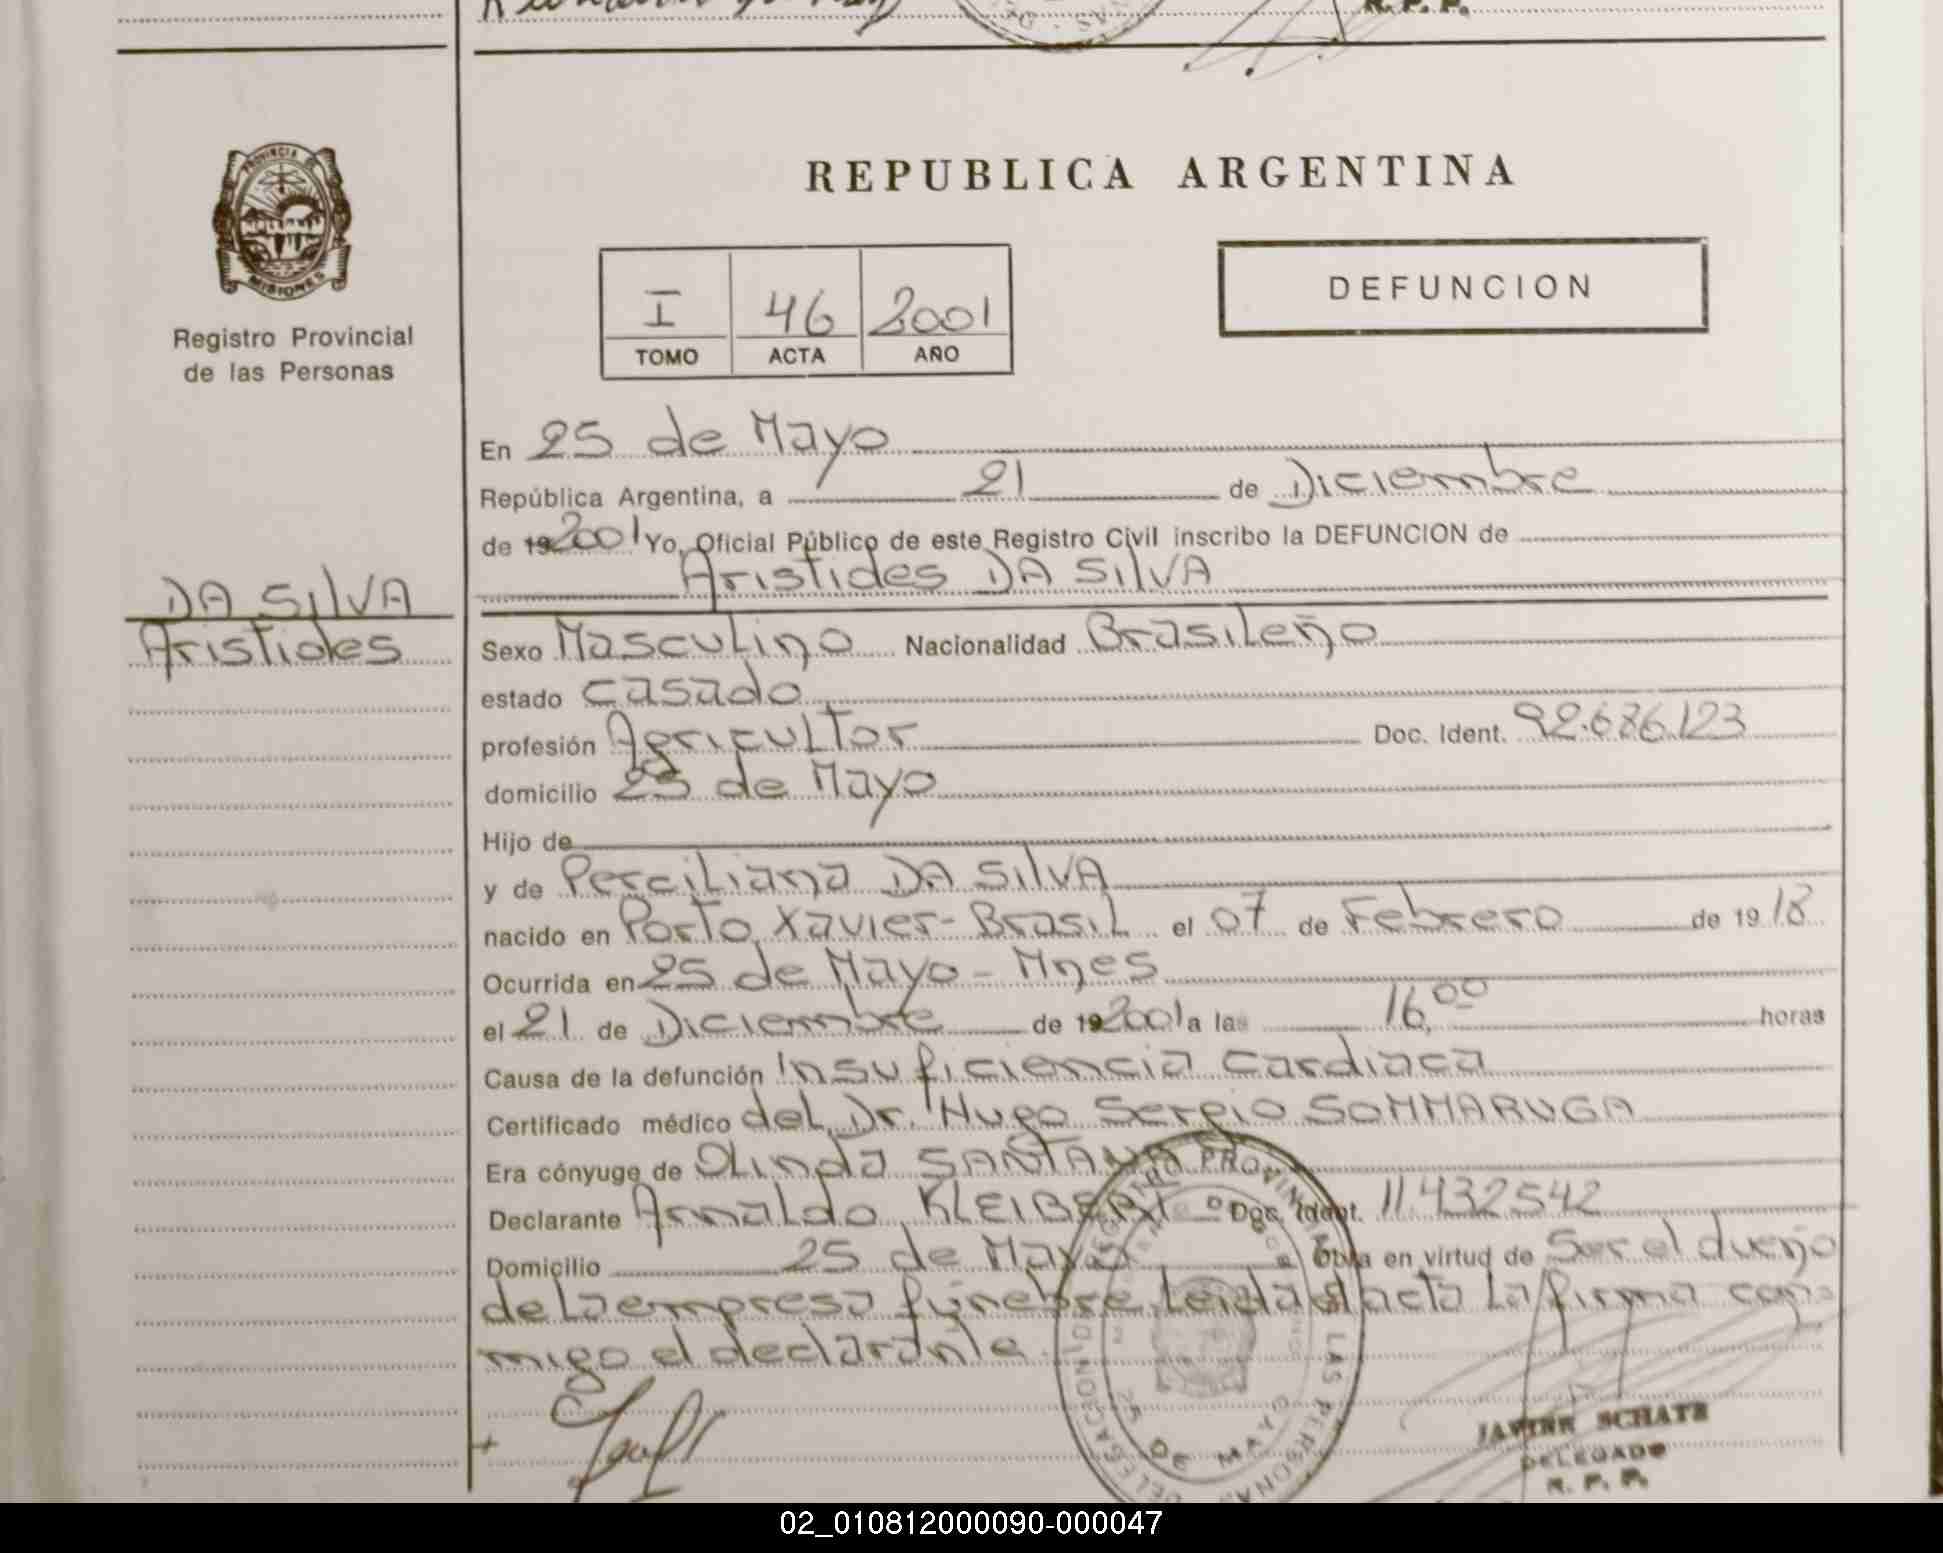 R. P. P.
PROVINCIA DE
MISIONES
Registro Provincial
de las Personas
REPUBLICA ARGENTINA
DEFUNCION
I 46 2001
TOMO ACTA AÑO
En 25 de Mayo
República Argentina, a 21 de Diciembre
de 192001 Yo, Oficial Público de este Registro Civil inscribo la DEFUNCION de
Aristides DA SilVA
DA SilVA
Aristides
Sexo Masculino Nacionalidad Brasileño
estado casado
profesión Agricultor Doc. Ident. 92.686.123
domicilio 25 de Mayo
Hijo de
y de Perciliana DA SilVA
nacido en Porto Xavier-Brasil el 07 de Febrero de 1918
Ocurrida en 25 de Mayo - Mnes
el 21 de Diciembre de 192001 a las 16,00 horas
Causa de la defunción Insuficiencia cardiaca
Certificado médico del Dr. Hugo Sergio SOMMARUGA
Era cónyuge de Olinda SANTANA
Declarante Arnaldo KLEIBERT Doc. Ident. 11.432542
Domicilio 25 de Mayo Obra en virtud de Ser el dueño
de la empresa fúnebre. Leida el acta La firma con-
migo el declarante
DELEGACION 25 DE MAYO
JAVIER SCHATZ
DELEGADO
R. P. P.
02_010812000090-000047